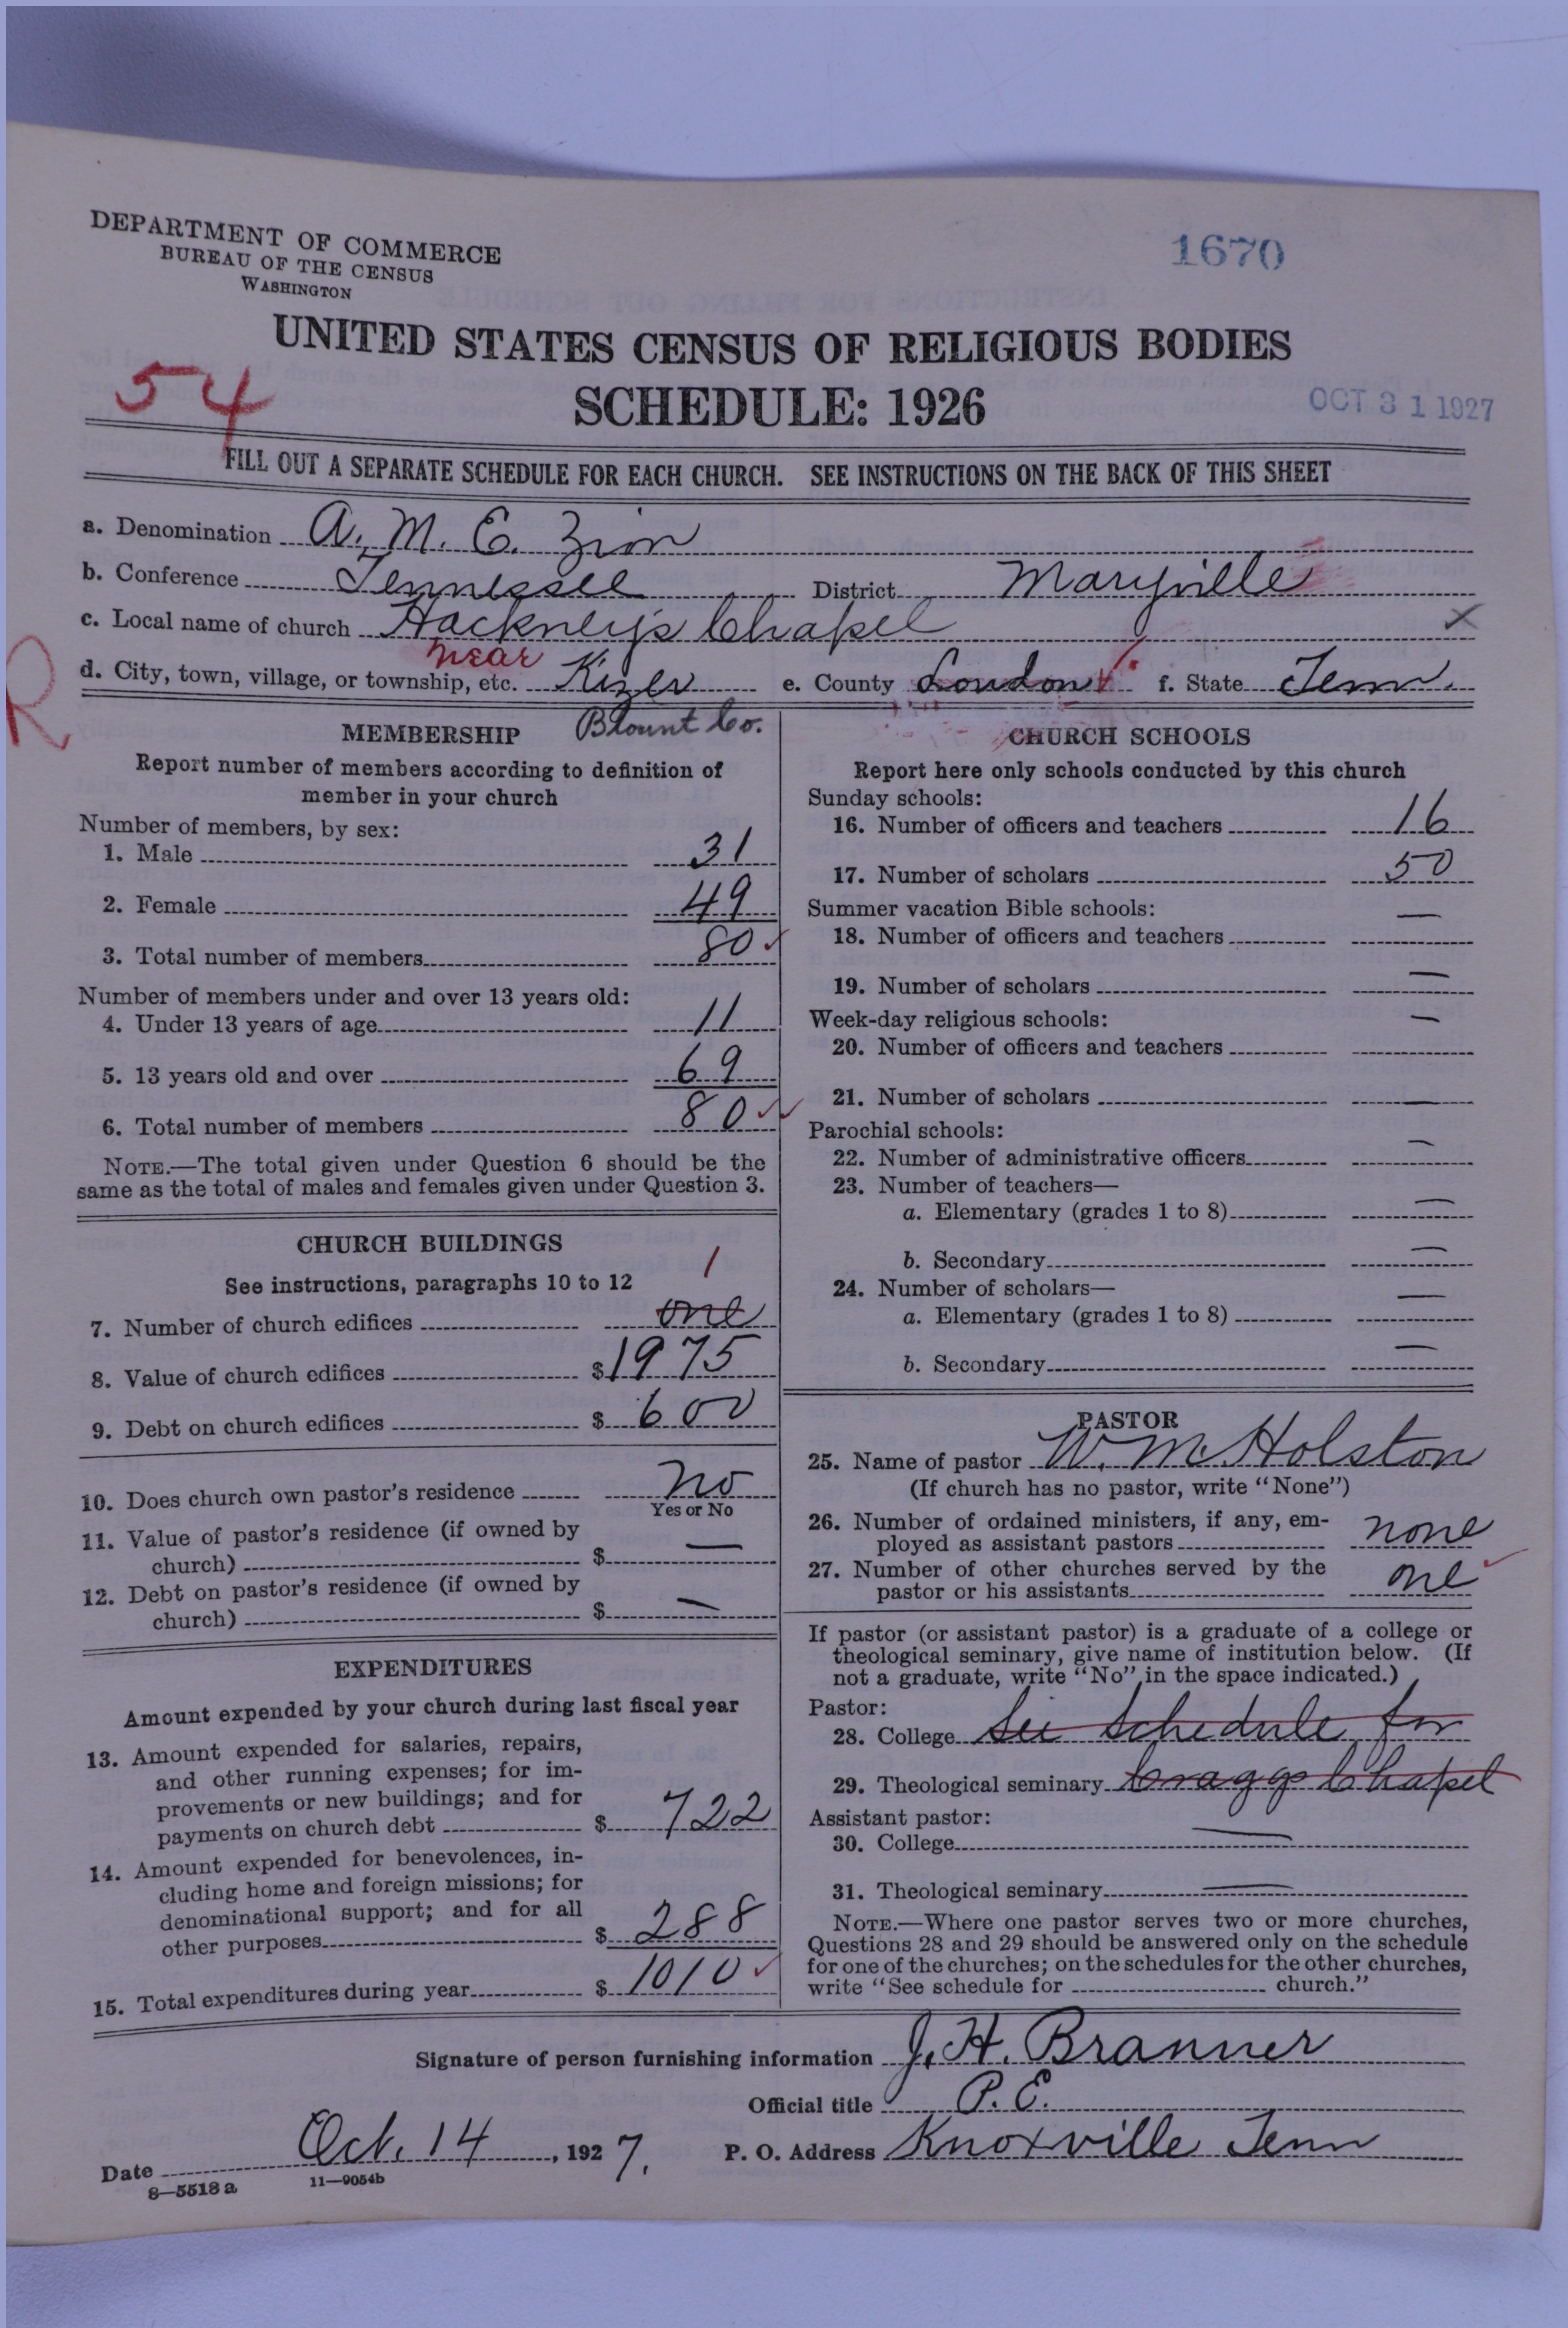 DEPARTMENT OF COMMERCE
BUREAU OF THE CENSUS
WASHINGTON
1670
UNITED STATES CENSUS OF RELIGIOUS BODIES
SCHEDULE: 1926
54
OCT 31 1927
FILL OUT A SEPARATE SCHEDULE FOR EACH CHURCH. SEE INSTRUCTIONS ON THE BACK OF THIS SHEET
a. Denomination A. M. E. Zion
b. Conference Tennessee District Maryville
c. Local name of church Hackney's Chapel x
near
d. City, town, village, or township, etc. Kizer e. County Loudon f. State Tenn.
R
Blount Co.
MEMBERSHIP
Report number of members according to definition of
member in your church
Number of members, by sex:
1. Male 31
2. Female 49
3. Total number of members 80 ✓
Number of members under and over 13 years old:
4. Under 13 years of age 11
5. 13 years old and over 69
6. Total number of members 80 ✓✓
NOTE.—The total given under Question 6 should be the
same as the total of males and females given under Question 3.
CHURCH BUILDINGS
See instructions, paragraphs 10 to 12
1
7. Number of church edifices one
8. Value of church edifices $1975
9. Debt on church edifices $ 600
10. Does church own pastor's residence no
Yes or No
11. Value of pastor's residence (if owned by
church) $ —
12. Debt on pastor's residence (if owned by
church) $ —
EXPENDITURES
Amount expended by your church during last fiscal year
13. Amount expended for salaries, repairs,
and other running expenses; for im-
provements or new buildings; and for
payments on church debt $ 722
14. Amount expended for benevolences, in-
cluding home and foreign missions; for
denominational support; and for all
other purposes $ 288
15. Total expenditures during year $ 1010 ✓
CHURCH SCHOOLS
Report here only schools conducted by this church
Sunday schools:
16. Number of officers and teachers 16
17. Number of scholars 50
Summer vacation Bible schools:
18. Number of officers and teachers —
19. Number of scholars —
Week-day religious schools:
20. Number of officers and teachers —
21. Number of scholars —
Parochial schools:
22. Number of administrative officers —
23. Number of teachers—
a. Elementary (grades 1 to 8) —
b. Secondary —
24. Number of scholars—
a. Elementary (grades 1 to 8) —
b. Secondary —
PASTOR
25. Name of pastor W. M. Holston
(If church has no pastor, write "None")
26. Number of ordained ministers, if any, em-
ployed as assistant pastors none
27. Number of other churches served by the
pastor or his assistants one ✓
If pastor (or assistant pastor) is a graduate of a college or
theological seminary, give name of institution below. (If
not a graduate, write "No" in the space indicated.)
Pastor:
28. College See Schedule for
29. Theological seminary Craggs Chapel
Assistant pastor:
30. College —
31. Theological seminary —
NOTE.—Where one pastor serves two or more churches,
Questions 28 and 29 should be answered only on the schedule
for one of the churches; on the schedules for the other churches,
write "See schedule for church."
Signature of person furnishing information J. H. Branner
Official title P. E.
Date Oct. 14, 1927. P. O. Address Knoxville Tenn
8—5518 a 11—9054b